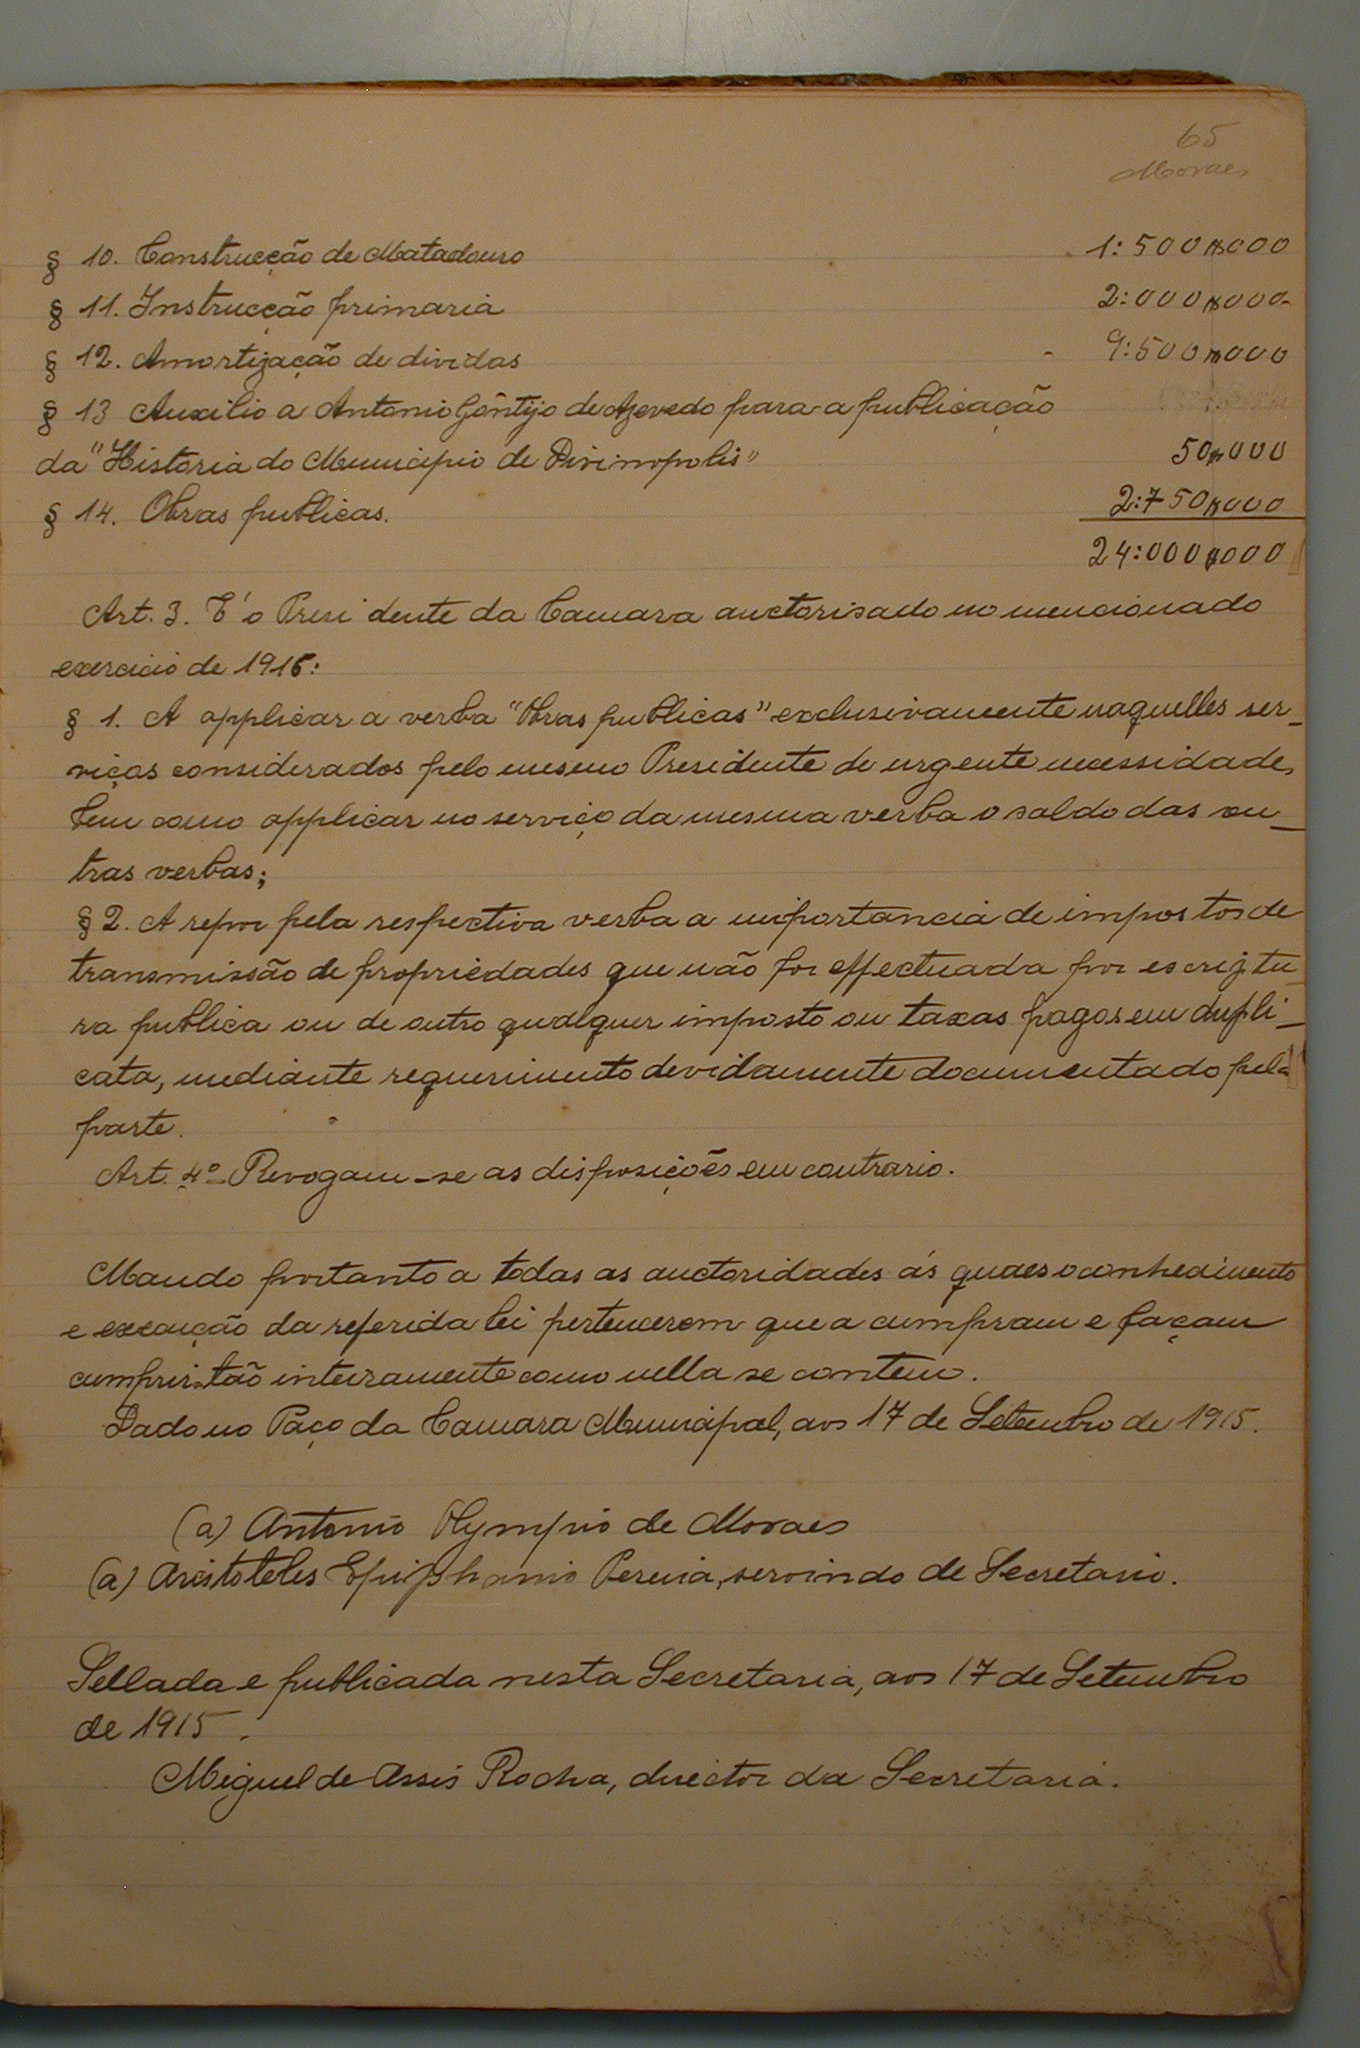 65
Moraes
§ 10. Construcção de Matadouro 1:500$000
§ 11. Instrucção primaria 2:000$000
§ 12. Amortização de dividas 9:500$000
§ 13 Auxilio a Antonio Gontijo de Azevedo para a publicação
da "Historia do Municipio de Divinopolis" 50$000
§ 14. Obras publicas. 2:750$000
24:000$000
Art. 3. E' o Presidente da Camara auctorisado no mencionado
exercicio de 1916:
§ 1. A applicar a verba "Obras publicas" exclusivamente naquelles ser-
viços considerados pelo mesmo Presidente de urgente necessidade,
bem como applicar no serviço da mesma verba o saldo das ou-
tras verbas;
§ 2. A repor pela respectiva verba a importancia de impostos de
transmissão de propriedades que não foi effectuada por escriptu
ra publica ou de outro qualquer imposto ou taxas pagos em dupli-
cata, mediante requerimento devidamente documentado pela
parte.
Art. 4º Revogam-se as disposições em contrario.
Mando portanto a todas as auctoridades ás quaes o conhecimento
e execução da referida lei pertencerem que a cumpram e façam
cumprir tão inteiramente como nella se contem.
Dado no Paço da Camara Municipal, aos 17 de Setembro de 1915.
(a) Antonio Olympio de Moraes
(a) Aristoteles Epiphanio Pereira, servindo de Secretario.
Sellada e publicada nesta Secretaria, aos 17 de Setembro
de 1915.
Miguel de Assis Rocha, director da Secretaria.